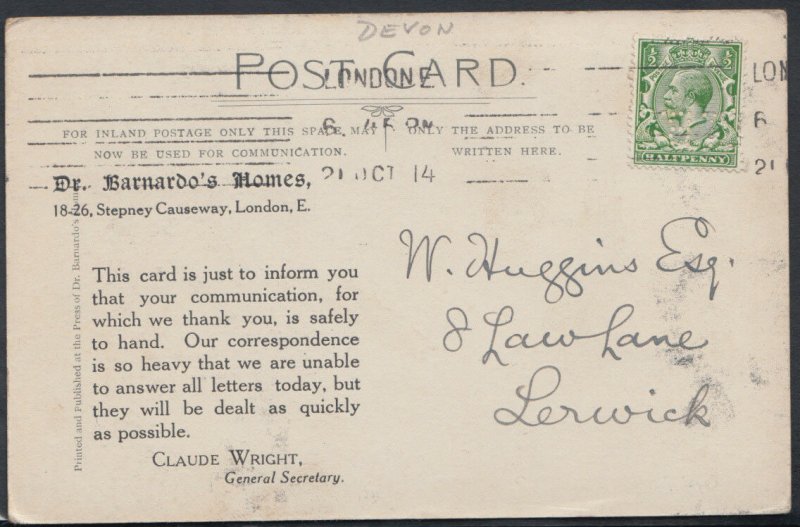 DEVON
POST CARD.
LONDON E
LON
FOR INLAND POSTAGE ONLY THIS SPACE MAY
NOW BE USED FOR COMMUNICATION.
ONLY THE ADDRESS TO BE
WRITTEN HERE.
6. 45 PM
6
21 OCT 14
21
½ ½
HALFPENNY
Dr. Barnardo's Homes,
18-26, Stepney Causeway, London, E.
Printed and Published at the Press of Dr. Barnardo's Homes
This card is just to inform you
that your communication, for
which we thank you, is safely
to hand. Our correspondence
is so heavy that we are unable
to answer all letters today, but
they will be dealt as quickly
as possible.
CLAUDE WRIGHT,
General Secretary.
W. Huggins Esq.
8 Law Lane
Lerwick